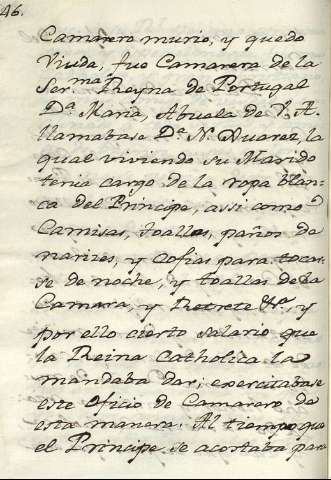 46.
Camarero murio, y quedo
Viuda, fue Camarera de la
Ser.ma Reyna de Portugal
D.a Maria, Abuela de V. A.
llamabase D.a N. Duarez, la
qual viviendo su Marido
tenia cargo de la ropa blan-
ca del Principe, assi como
Camisas, toallas, paños de
narizes, y Cofias para tocar-
se de noche, y toallas de la
Camara, y Retrete &.a y
por ello cierto salario que
la Reina Catholica la
mandaba dar; exercitabase
este Oficio de Camarero de
esta manera. Al tiempo que
el Principe se acostaba para